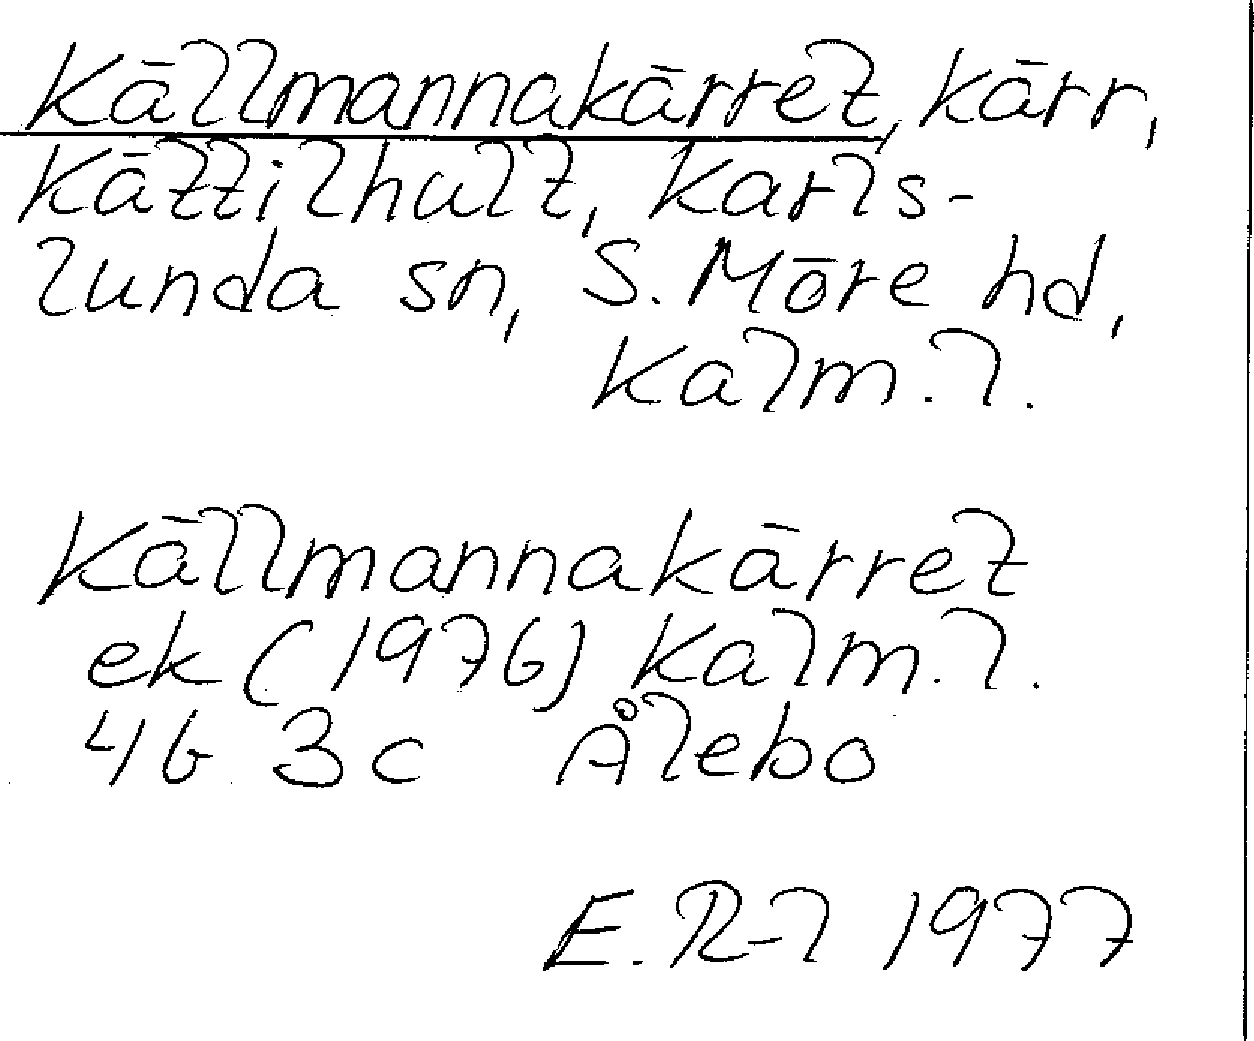 Källmannakärret, kärr,
Kättilhult, Karls-
lunda sn, S. Möre hd,
Kalm. l.
Källmannakärret
ek (1976) Kalm. l.
4G 3c Ålebo
E. R-l 1977